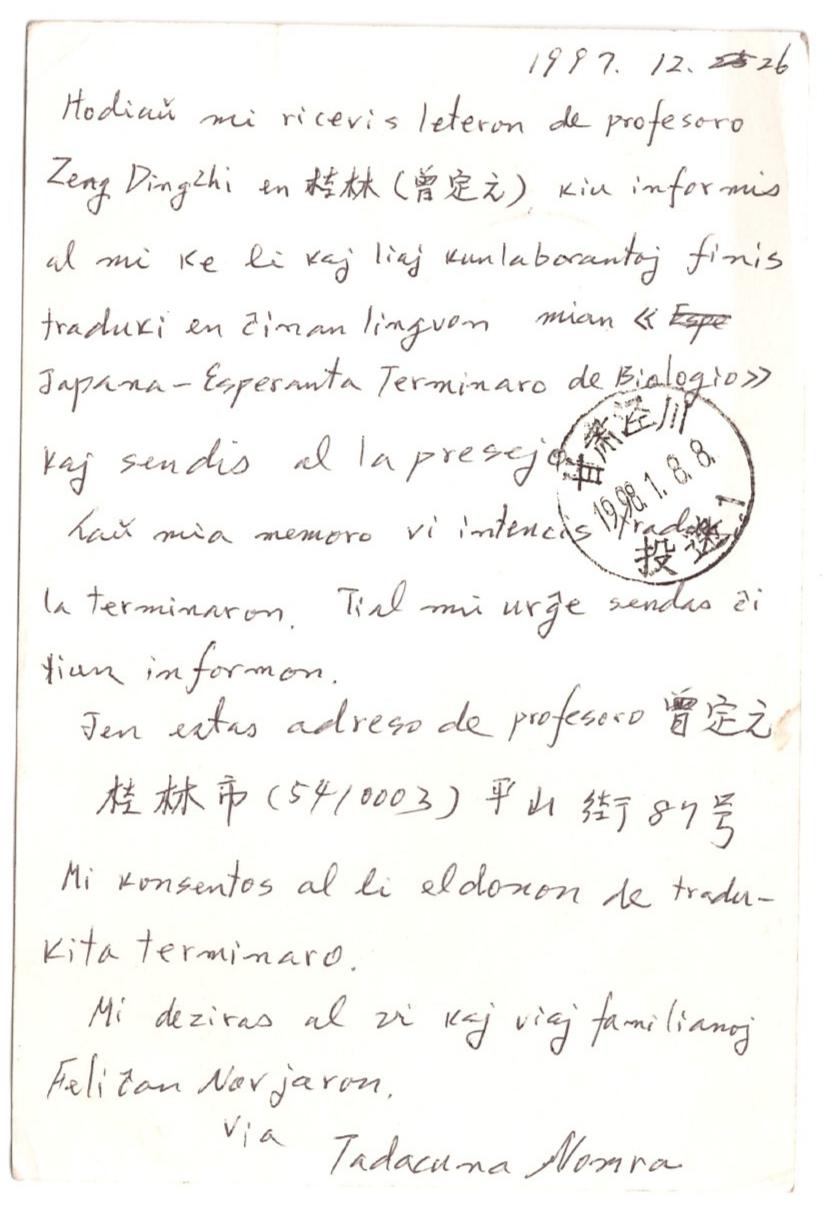 1997. 12. 26
Hodiaŭ mi ricevis leteron de profesoro
Zeng Dingzhi en 桂林 (曾定元) kiu informis
al mi ke li kaj liaj kunlaborantoj finis
traduki en ĉinan lingvon mian « Espe
Japana-Esperanta Terminaro de Biologio»
kaj sendis al la presejo
甘肃泾川
1998.1.8.8
投递
Laŭ mia memoro vi intencis traduki
la terminaron. Tial mi urĝe sendas ĉi
tiun informon.
Jen estas adreso de profesoro 曾定元
桂林市 (5410003) 平山街87号
Mi konsentos al li eldonon de tradu-
kita terminaro.
Mi deziras al vi kaj viaj familianoj
Feliĉan Novjaron.
Via
Tadacuna Nomra